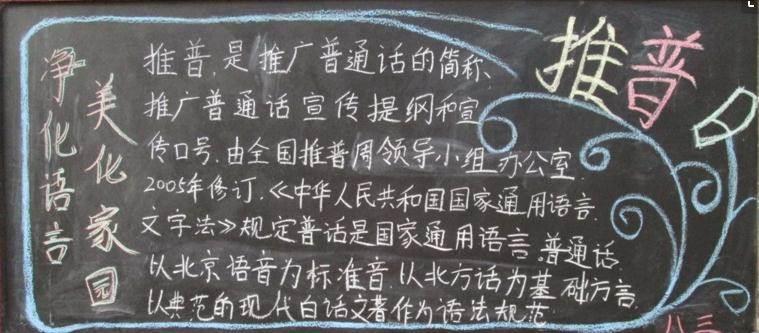 净化语言
美化家园
推普
推普,是推广普通话的简称、
推广普通话宣传提纲和宣
传口号.由全国推普周领导小组办公室.
2005年修订.《中华人民共和国国家通用语言.
文字法》规定普话是国家通用语言.普通话
以北京语音为标准音.以北方话为基础方言.
以典范的现代白话文著作为语法规范.
八三